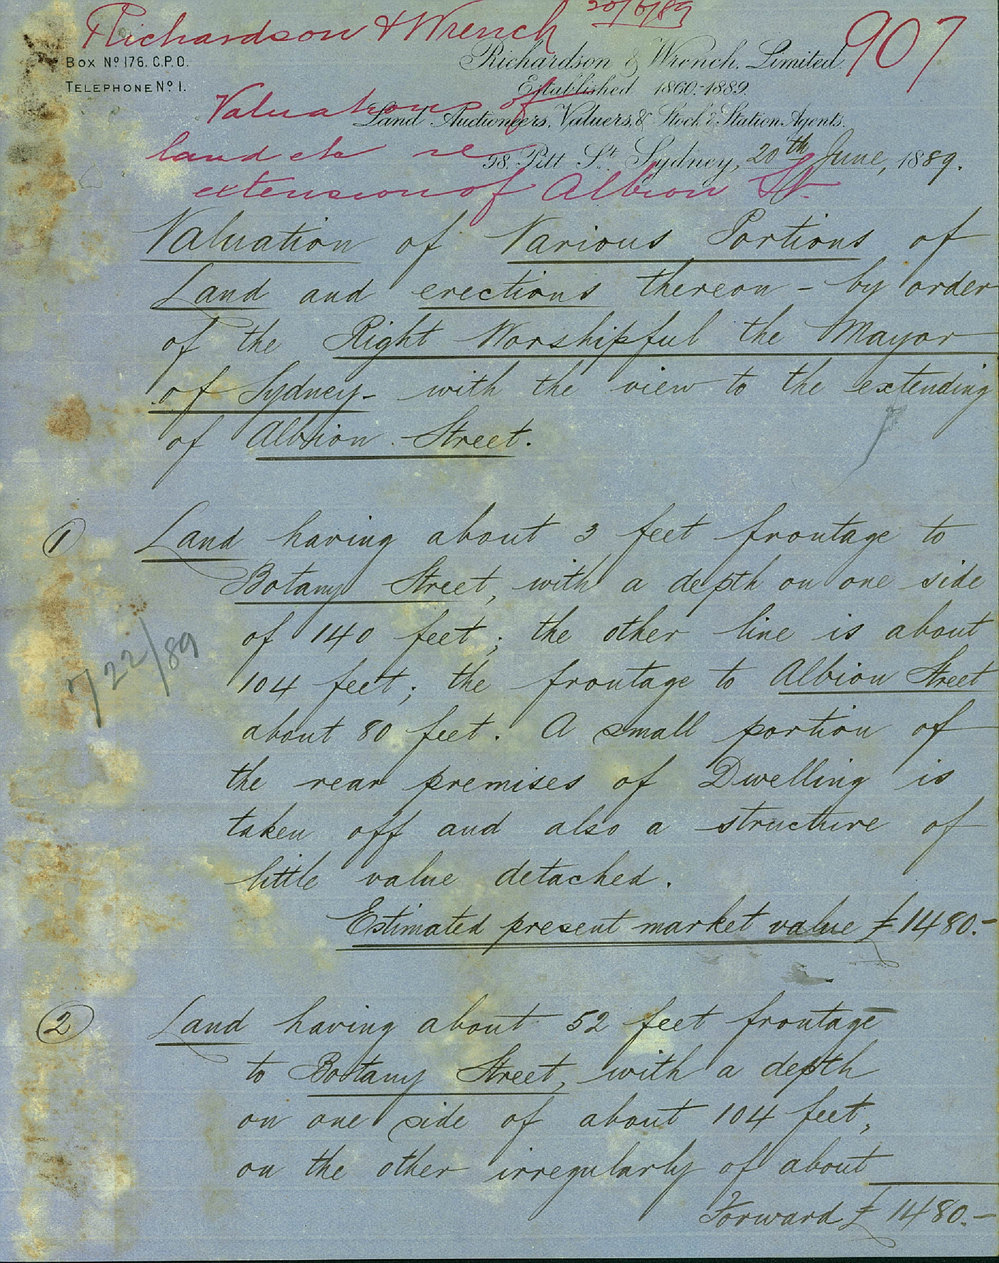 Richardson & Wrench 20/6/89
907
Box Nº 176. G.P.O.
Telephone Nº 1.
Richardson & Wrench, Limited
Established 1860-1889.
Land Auctioneers, Valuers, & Stock & Station Agents.
98 Pitt St. Sydney, 20th June, 1889.
Valuations of
land etc re
extension of Albion St.
Valuation of Various Portions of
Land and erections thereon - by order
of the Right Worshipful the Mayor
of Sydney - with the view to the extending
of Albion Street.
1 Land having about 3 feet frontage to
Botany Street, with a depth on one side
of 140 feet; the other line is about
104 feet; the frontage to Albion Street
about 80 feet. A small portion of
the rear premises of Dwelling is
taken off and also a structure of
little value detached.
Estimated present market value £1480.-
22/89
2 Land having about 52 feet frontage
to Botany Street, with a depth
on one side of about 104 feet,
on the other irregularly of about
Forward £1480.-